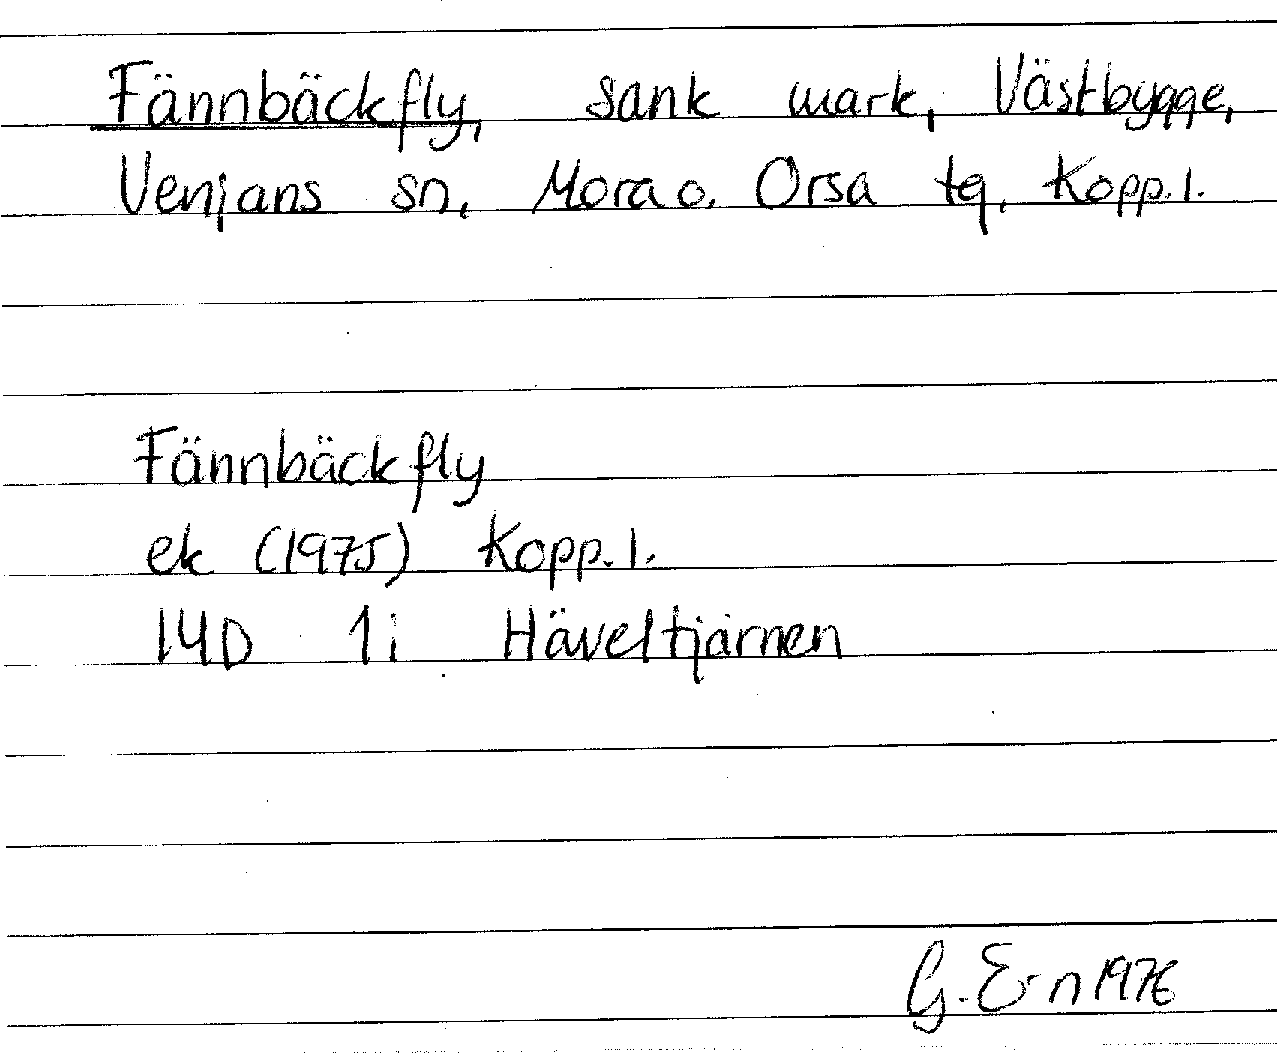 Fännbäckfly, sank mark, Västbygge,
Venjans sn, Mora o. Orsa tg, Kopp. l.
Fännbäckfly
ek (1975) Kopp. l.
14D 1i Häveltjärnen
G. E-n 1976